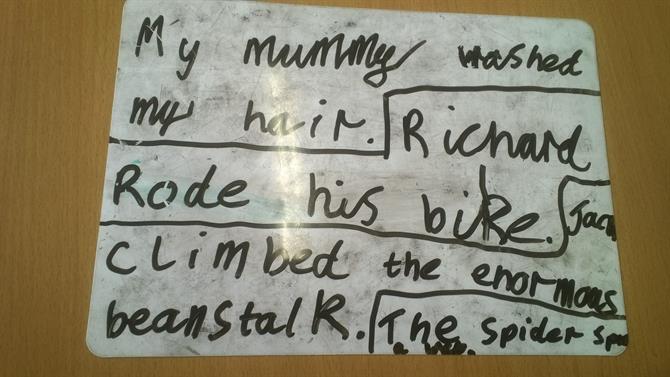 My mummy washed
my hair. Richard
Rode his bike. Jack
climbed the enormous
beanstalk. The spider